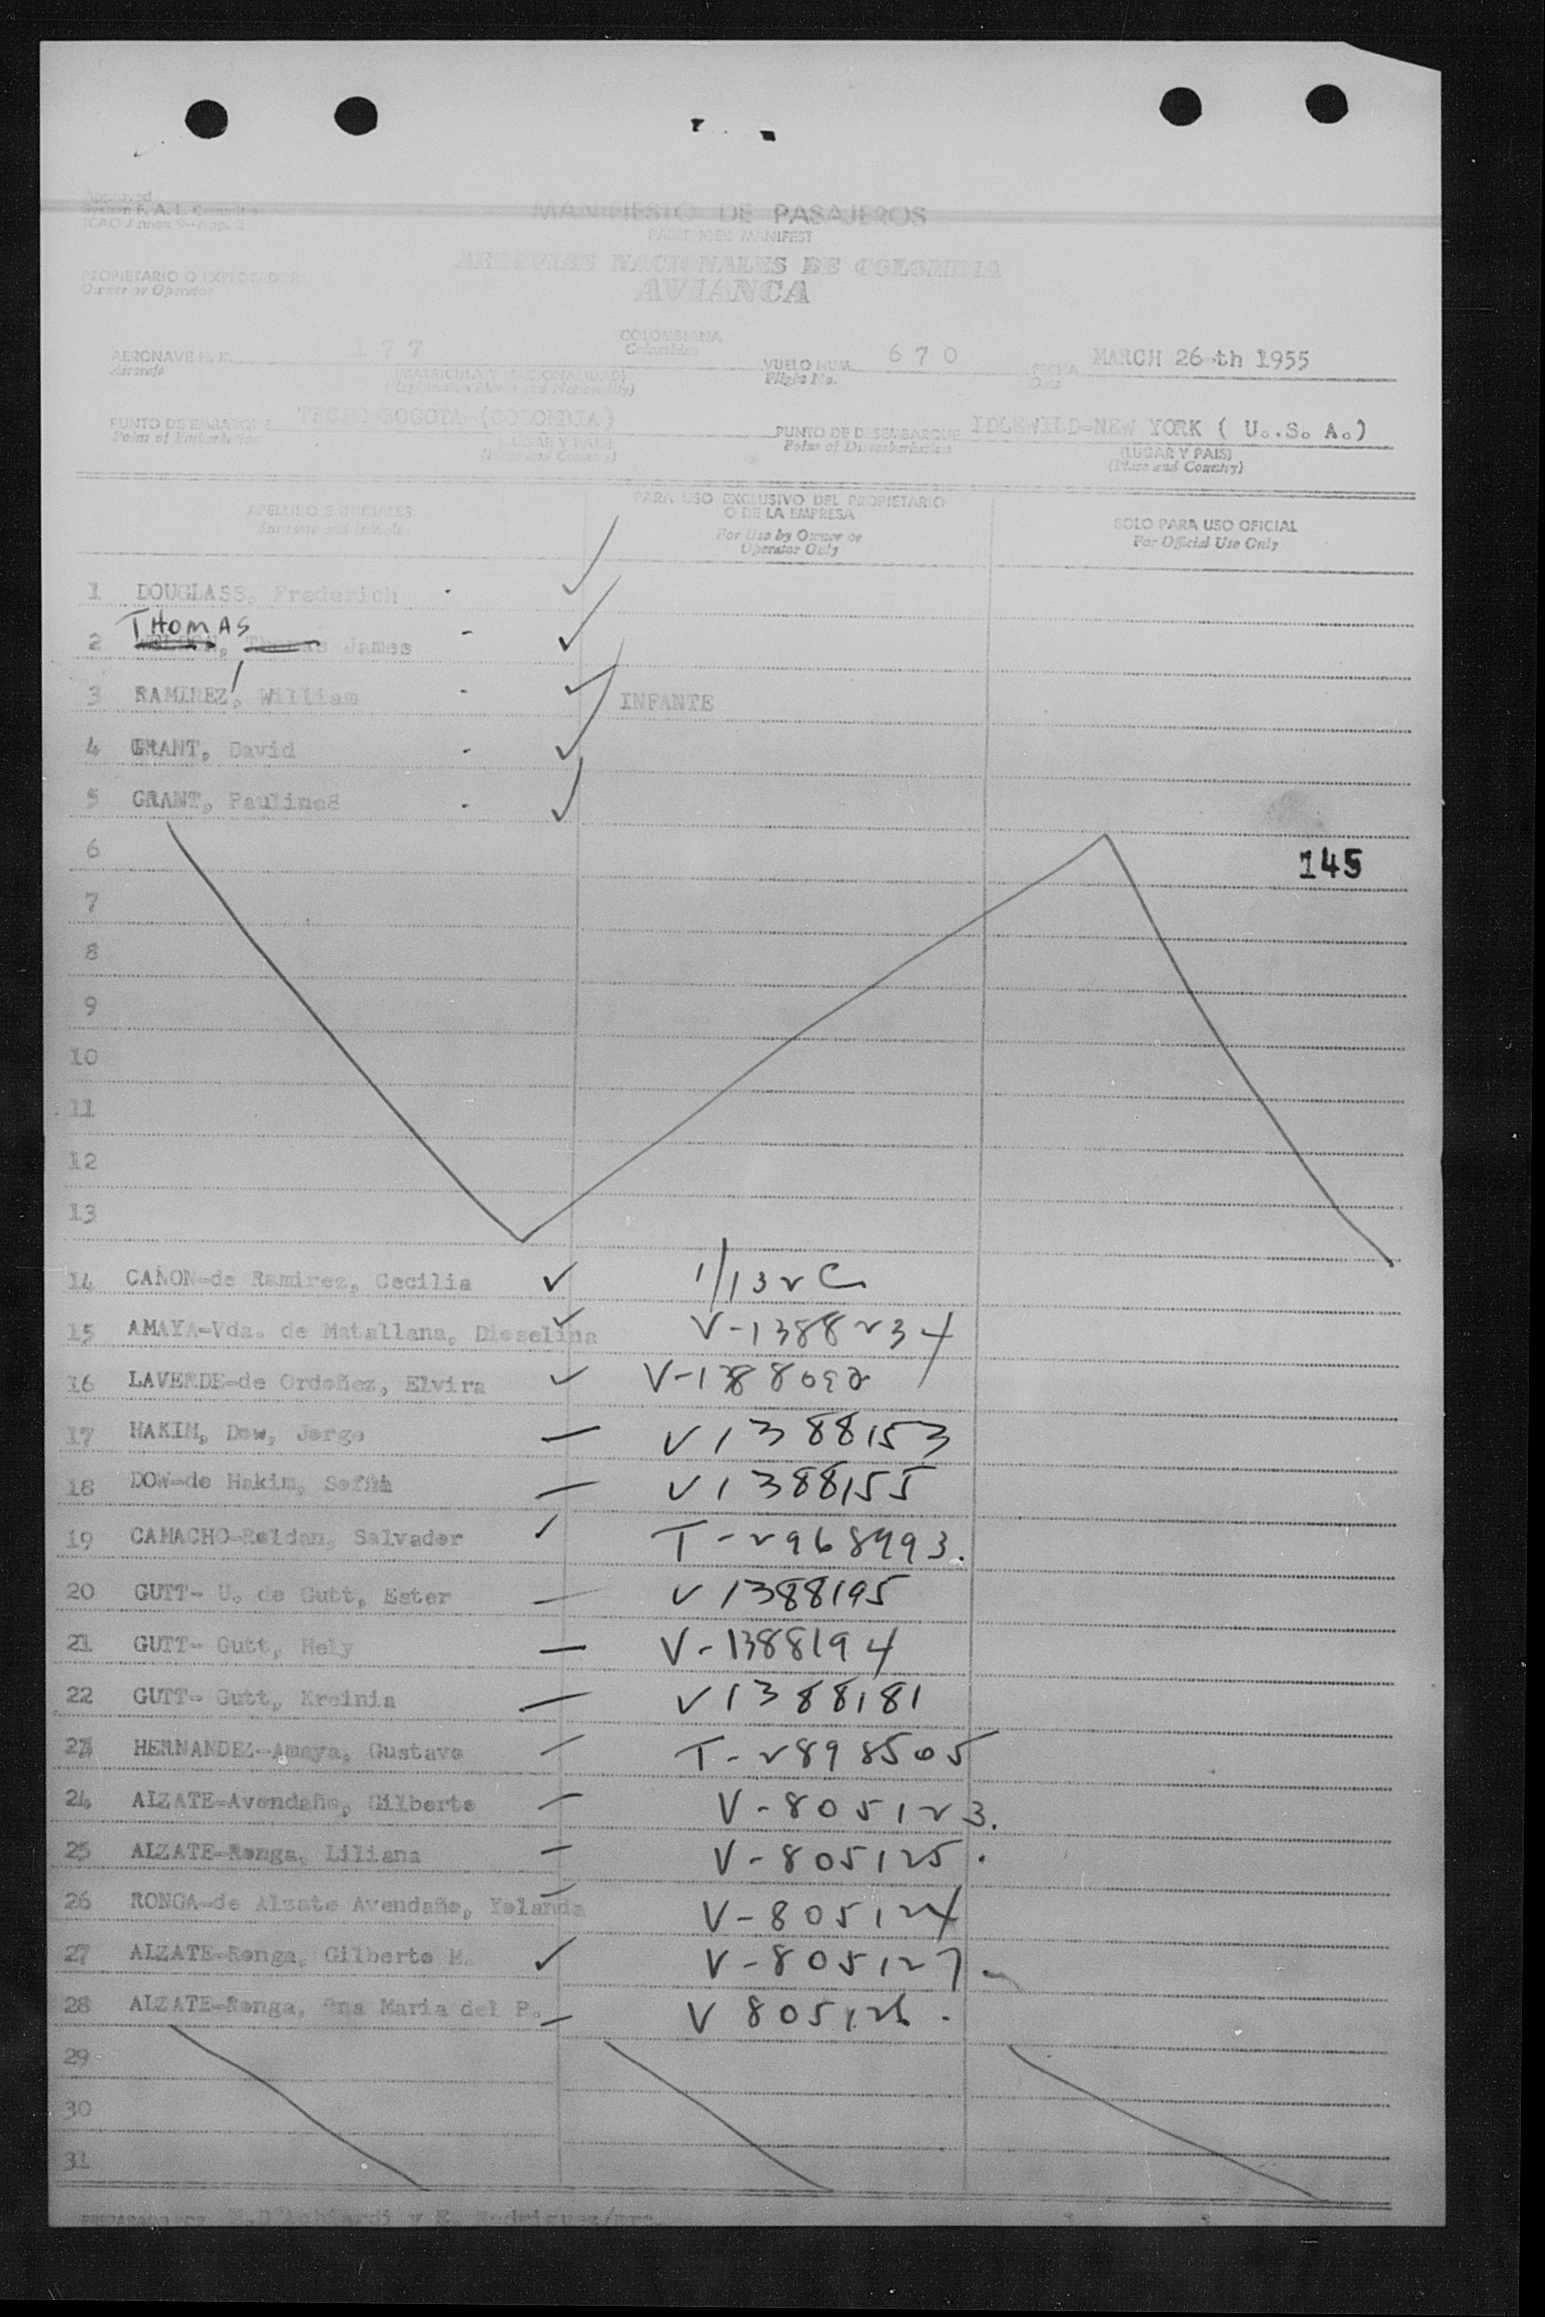 Approved
System F. A. L. Committee
MANIFIESTO DE PASAJEROS
PASSENGER MANIFEST
AEROVIAS NACIONALES DE COLOMBIA
AVIANCA
PROPIETARIO O EXPLOTADOR
Owner or Operator
AERONAVE H. K. 177
Aircraft
COLOMBIANA
Colombian
VUELO NUM. 670
Flight No.
FECHA MARCH 26-th 1955
Date
PUNTO DE EMBARQUE TECHO-BOGOTA-(COLOMBIA)
Point of Embarkation
(LUGAR Y PAIS)
(Place and Country)
PUNTO DE DESEMBARQUE IDLEWILD-NEW YORK ( U..S. A.)
Point of Disembarkation
(LUGAR Y PAIS)
(Place and Country)
APELLIDOS INICIALES
Surname and initials
PARA USO EXCLUSIVO DEL PROPIETARIO
O DE LA EMPRESA
For Use by Owner or
Operator Only
SOLO PARA USO OFICIAL
For Official Use Only
1 DOUGLASS, Frederich
THOMAS
2 Thomas James
3 RAMIREZ, William INFANTE
4 GRANT, David
5 GRANT, Pauline
6
145
7
8
9
10
11
12
13
14 CAÑON-de Ramirez, Cecilia
15 AMAYA-Vda. de Matallana, Dioselina V-1388234
16 LAVERDE-de Ordoñez, Elvira V-1388032
17 HAKIM, Dow, Jorge V1388153
18 DOW-de Hakim, V1388155
19 CAMACHO-Roldan, Salvador T-2968993.
20 GUTT- U. de Gutt, Ester V1388195
21 GUTT- Gutt, Hely V-1388194
22 GUTT- Gutt, Kreinia V1388181
23 HERNANDEZ-Amaya, Gustavo T-2898505
24 ALZATE-Avendaño, Gilberto V-805123.
25 ALZATE-Ronga, Liliana V-805125.
26 RONGA-de Alzate Avendaño, Yolanda V-805124
27 ALZATE-Ronga, Gilberto M. V-805127
28 ALZATE-Ronga, Ana Maria del P. V 805126.
29
30
31
PREPARADO POR M.D'Achiardi y E. Rodriguez/